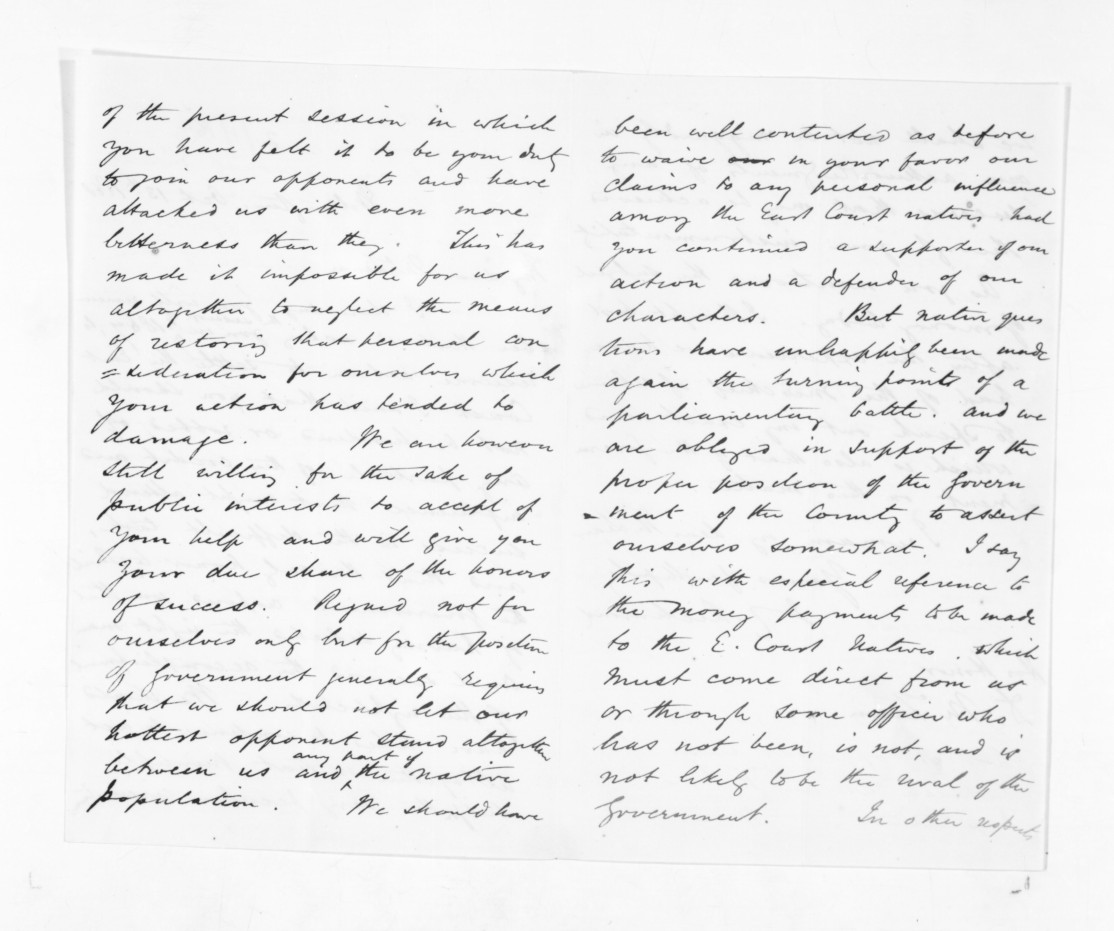 of the present session in which
you have felt it to be your duty
to join our opponents and have
attacked us with even more
bitterness than they. This has
made it impossible for us
altogether to neglect the means
of restoring that personal con
=sideration for ourselves which
your action has tended to
damage. We are however
still willing for the sake of
public interests to accept of
your help and will give you
your due share of the honors
of success. Regard not for
ourselves only but for the position
of Government generally requires
that we should not let our
hottest opponent stand altogether
between us and any part of the native
population. We should have
been well contented as before
to waive our in your favor our
claims to any personal influence
among the East Coast natives had
you continued a supporter of our
action and a defender of our
characters. But native ques
tions have unhappily been made
again the turning points of a
parliamentary battle. and we
are obliged in support of the
proper position of the Govern
=ment of the Country to assert
ourselves somewhat. I say
this with especial reference to
the money payments to be made
to the E. Coast Natives which
must come direct from us
or through some officer who
has not been, is not, and is
not likely to be the rival of the
Government. In other respects